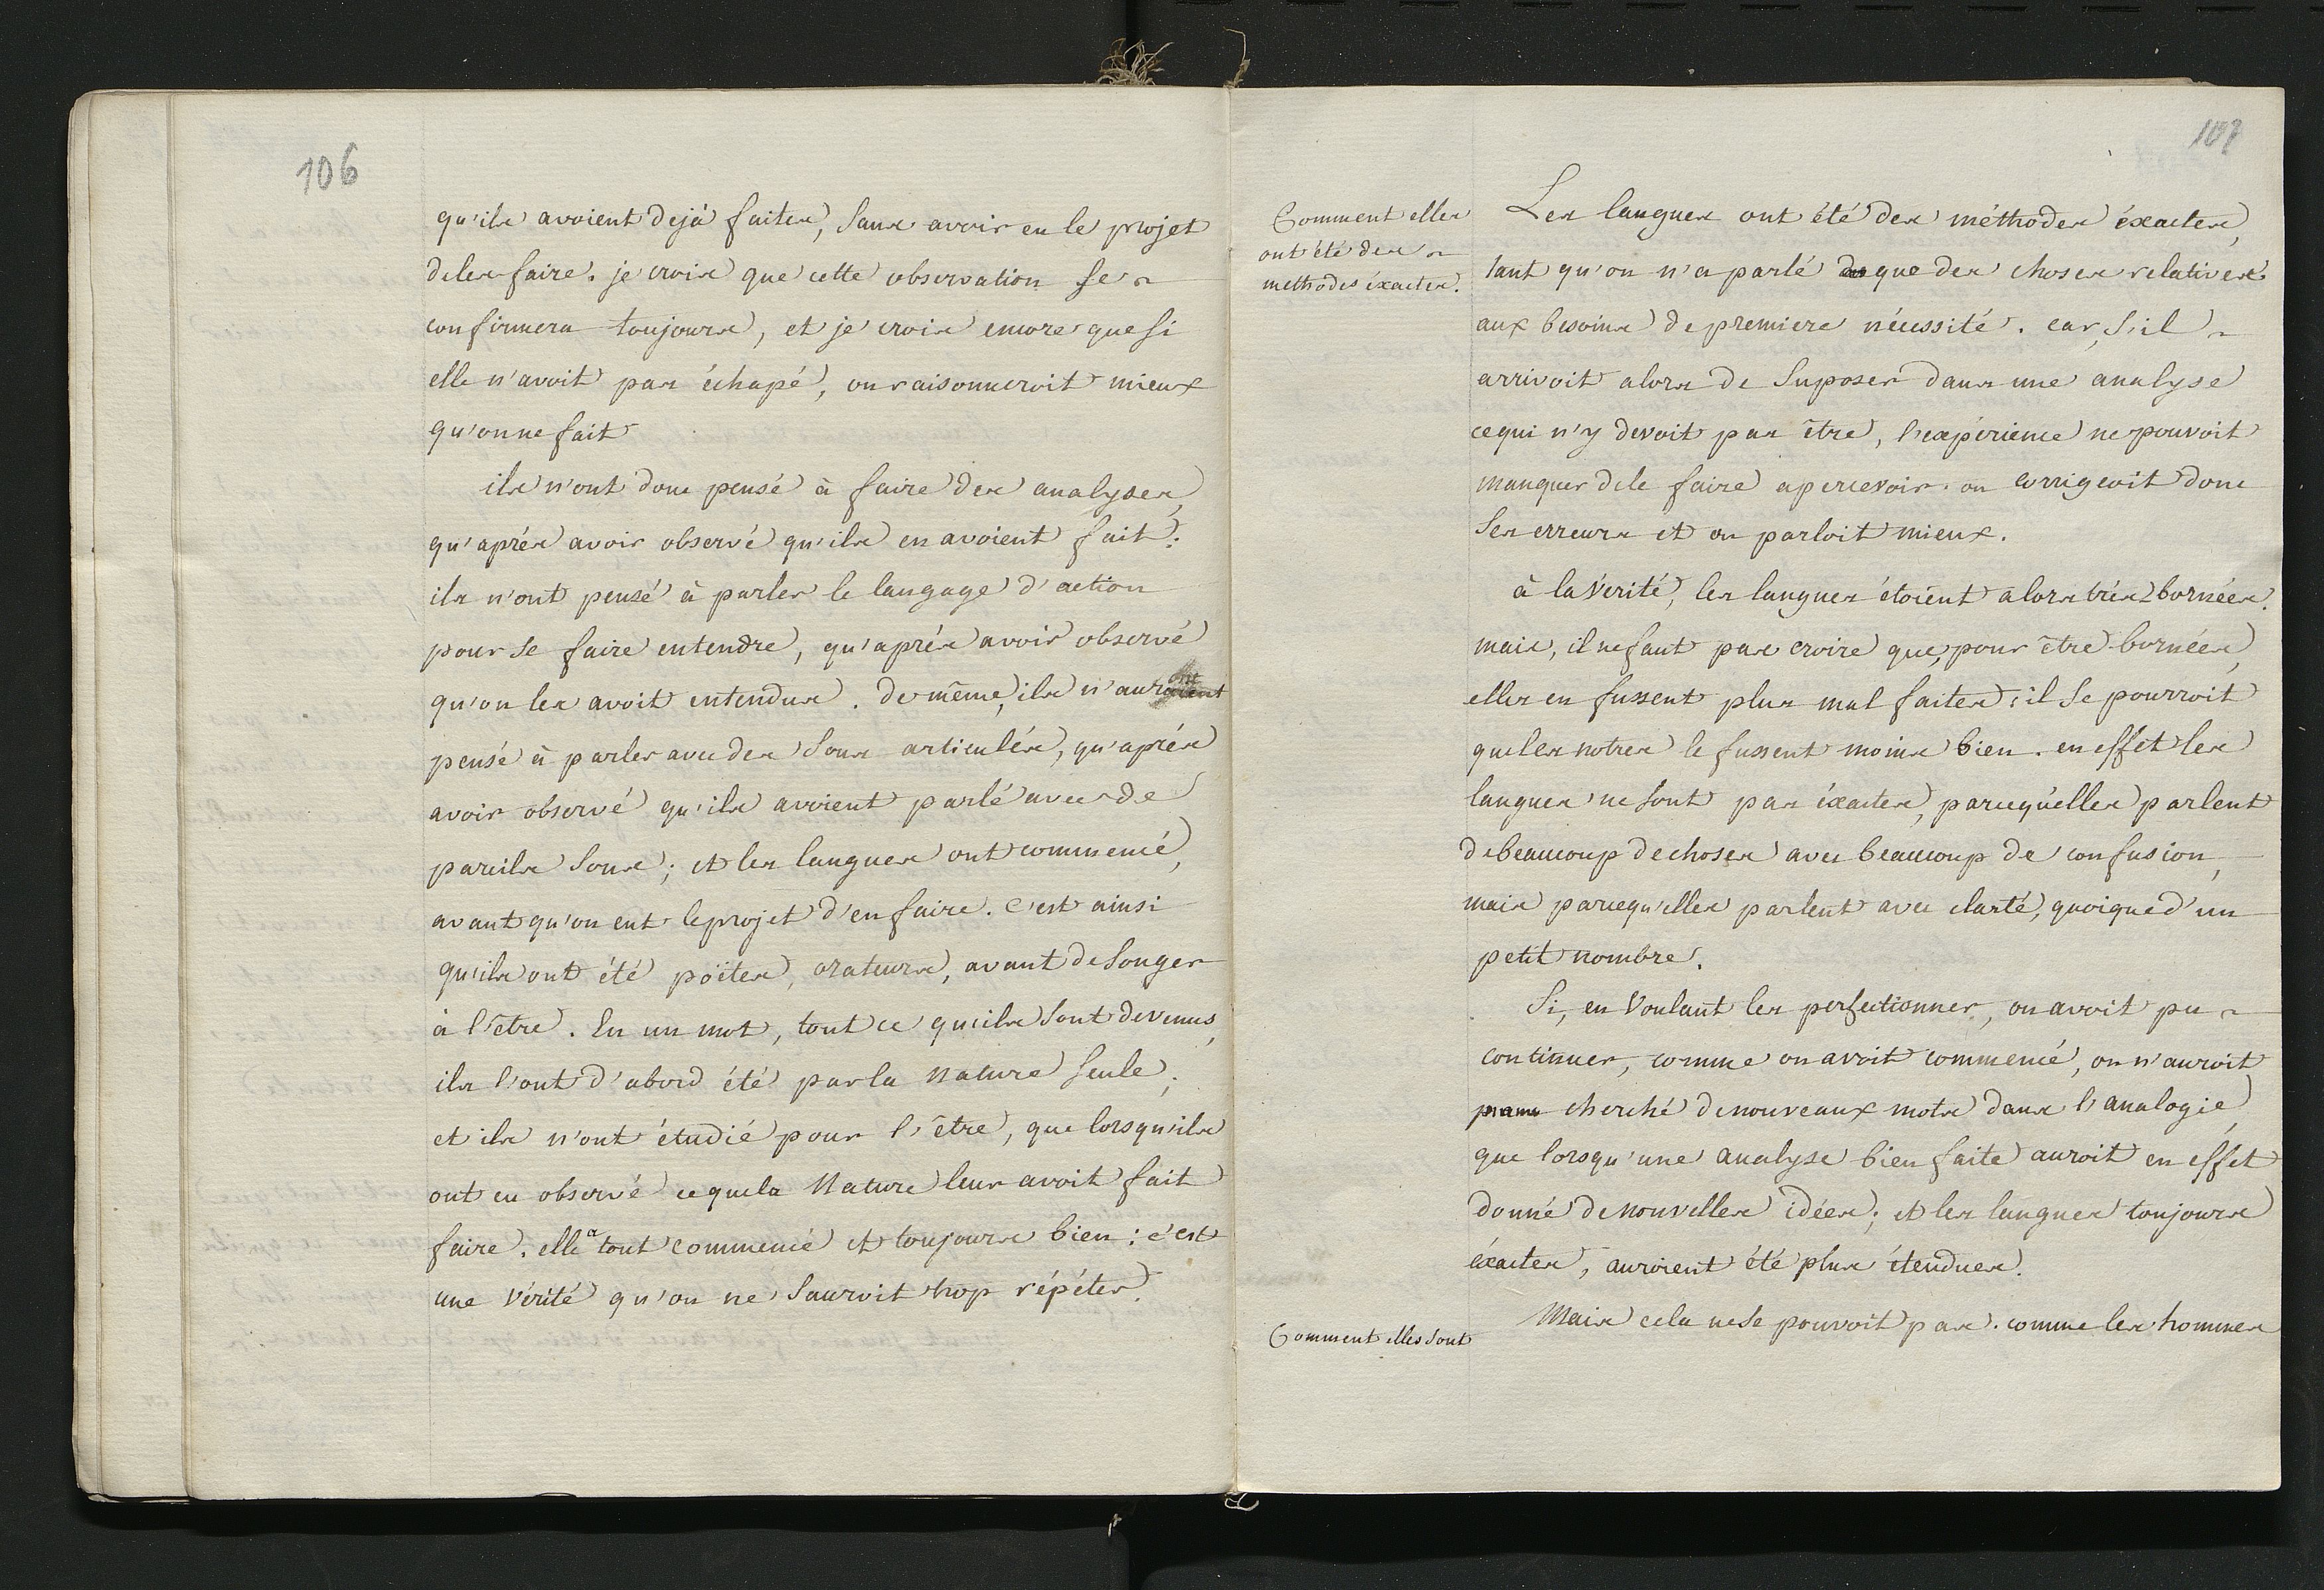 106
qu'ils avoient dejà faites, sans avoir eu le projet
de les faire. je crois que cette observation se
confirmera toujours, et je crois encore que si
elle n'avoit pas échapé, on raisonneroit mieux
qu'on ne fait
ils n'ont donc pensé à faire des analyses,
qu'après avoir observé qu'ils en avoient fait:
ils n'ont pensé à parler le langage d'action
pour se faire entendre, qu'après avoir observé
qu'on les avoit entendus. De même, ils n'auront
pensé à parler avec des sons articulés, qu'après
avoir observé qu'ils avoient parlé avec de
pareils sons; et les langues ont commencé,
avant qu'on eut le projet d'en faire. C'est ainsi
qu'ils ont été poëtes, orateurs, avant de songer
à l'être. En un mot, tout ce qu'ils sont devenus,
ils l'ont d'abord été par la Nature seule;
et ils n'ont étudié pour l'être, que lorsqu'ils
ont eu observé ce que la Nature leur avoit fait
faire. elle a tout commencé et toujours bien: c'est
une vérité qu'on ne sauroit trop répéter.
107
Comment elles
ont été des
methodes éxactes.
Les langues ont été des méthodes éxactes,
tant qu'on n'a parlé que des choses relatives
aux besoins de premiere nécessité. car, s'il
arrivoit alors de suposer dans une analyse
ce qui n'y devoit pas être, l'expérience ne pouvoit
manquer de le faire apercevoir. on corrigeoit donc
ses erreurs et on parloit mieux.
à la vérité, les langues étoient alors très bornées.
mais, il ne faut pas croire que, pour être bornées,
elles en fussent plus mal faites: il se pourroit
que les notres le fussent moins bien. en effet les
langues ne sont pas éxactes, parcequ'elles parlent
de beaucoup de choses avec beaucoup de confusion,
mais parcequ'elles parlent avec clarté, quoique d'un
petit nombre.
Si, en voulant les perfectionner, on avoit pu
continuer, comme on avoit commencé, on n'auroit
cherché de nouveaux mots dans l'analogie,
que lorsqu'une analyse bien faite auroit en effet
donné de nouvelles idées; et les langues toujours
éxactes, auroient été plus étendues.
Comment elles sont
Mais cela ne se pouvoit pas. comme les hommes